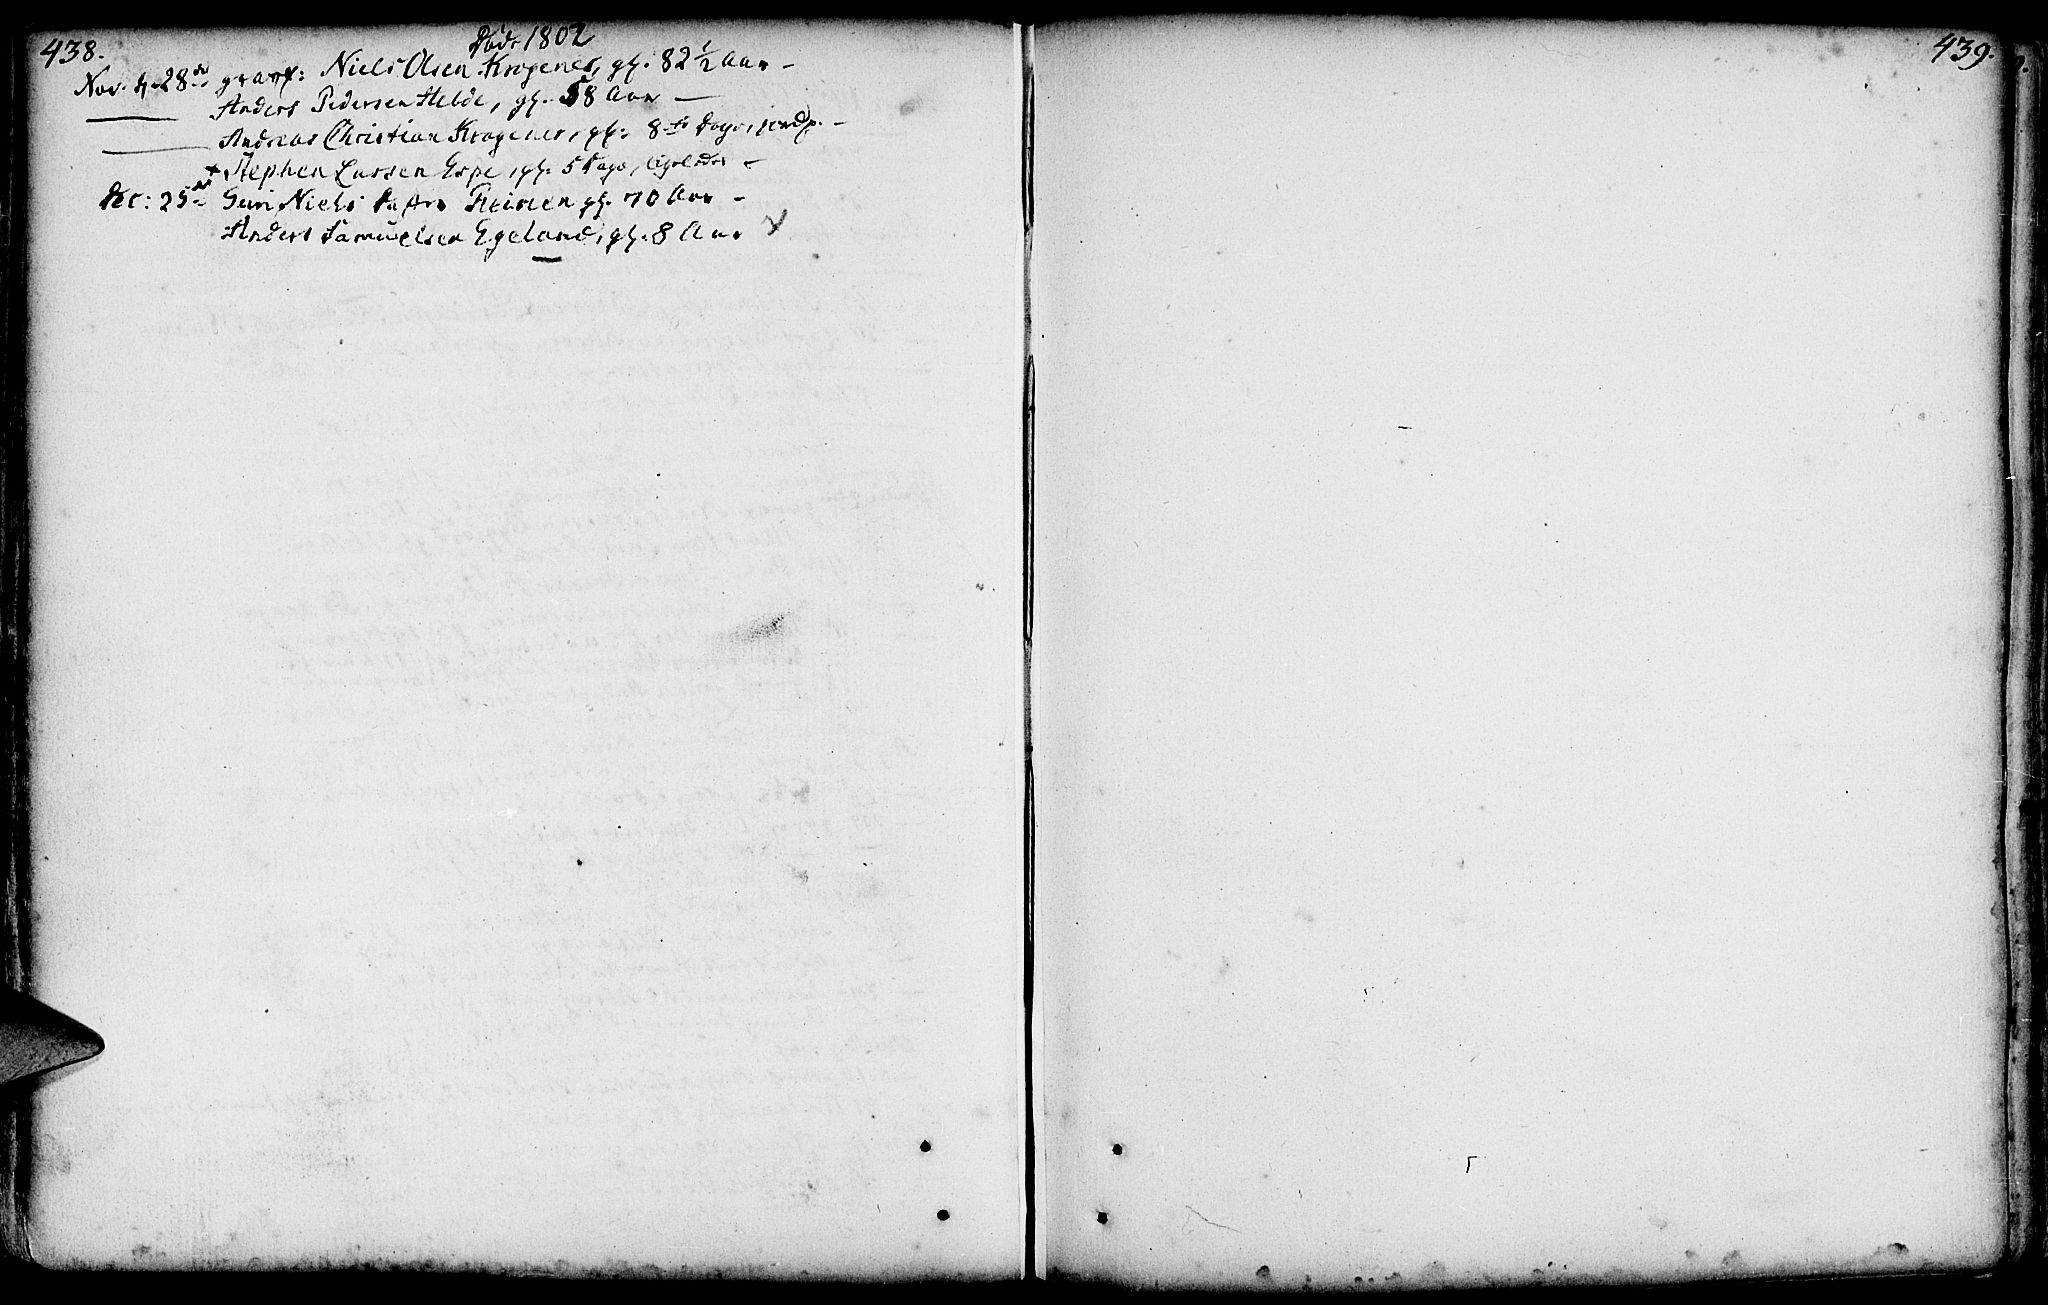 438.
Døde 1802
Nov. d. 28de gravf: Niels Olsen Kragenes, gl. 82 1/2 Aar -
Anders Pedersen Helde, gl. 58 Aar -
Andreas Christian Kragenes, gl: 8te Dage,
+ Stephen Larsen Espe, gl. 5 Dage, ligeledes -
Dec: 25de Guri Niels Datter Reisen gl. 70 Aar -
Anders Samuelsen Egeland, gl. 8 Aar
439.